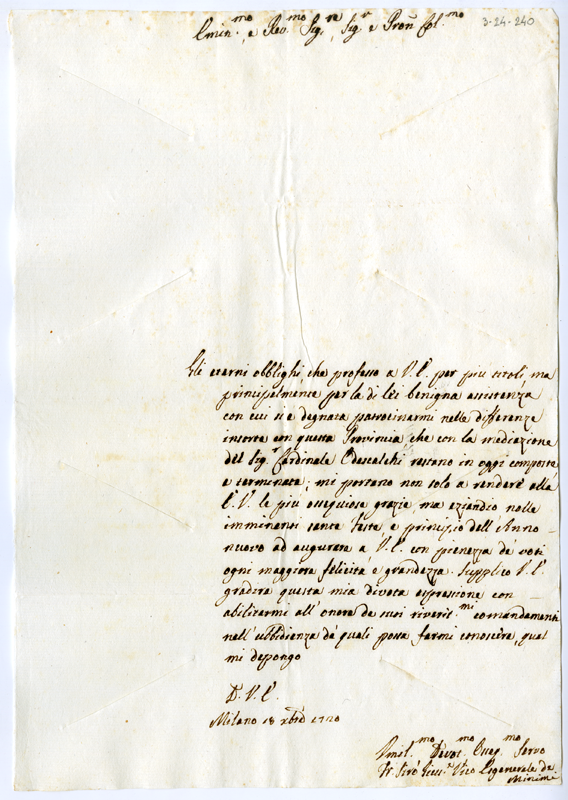 3-24-240
Emin.mo e Rev.mo Sig.re, Sig.r e Pron Col.mo
Gli eterni obblighi che professo a V. E. per più titoli, ma
principalmente per la di lei benigna assistenza
con cui si è degnata patrocinarmi nelle differenze
insorte con questa Provincia, che con la mediazione
del Sig.r Cardinale Odescalchi restano in oggi composte
e terminate; mi portano non solo a rendere alla
E. V. le più ossequiose grazie, ma eziandio nelle
imminenti sante feste e principio dell'Anno
nuovo ad augurare a V. E. con pienezza de voti
ogni maggiore felicità e grandezza. Supplico V. E.
gradire questa mia divota espressione con
abilitarmi all'onore de suoi riverit.mi comandamenti
nell'ubbidienza de quali possa farmi conoscere, qual
mi depongo
D. V. E.
Milano 18 xbre 1720
Umil.mo Devot. Osseq.mo Servo
Fr. Vico Generale de
Minimi